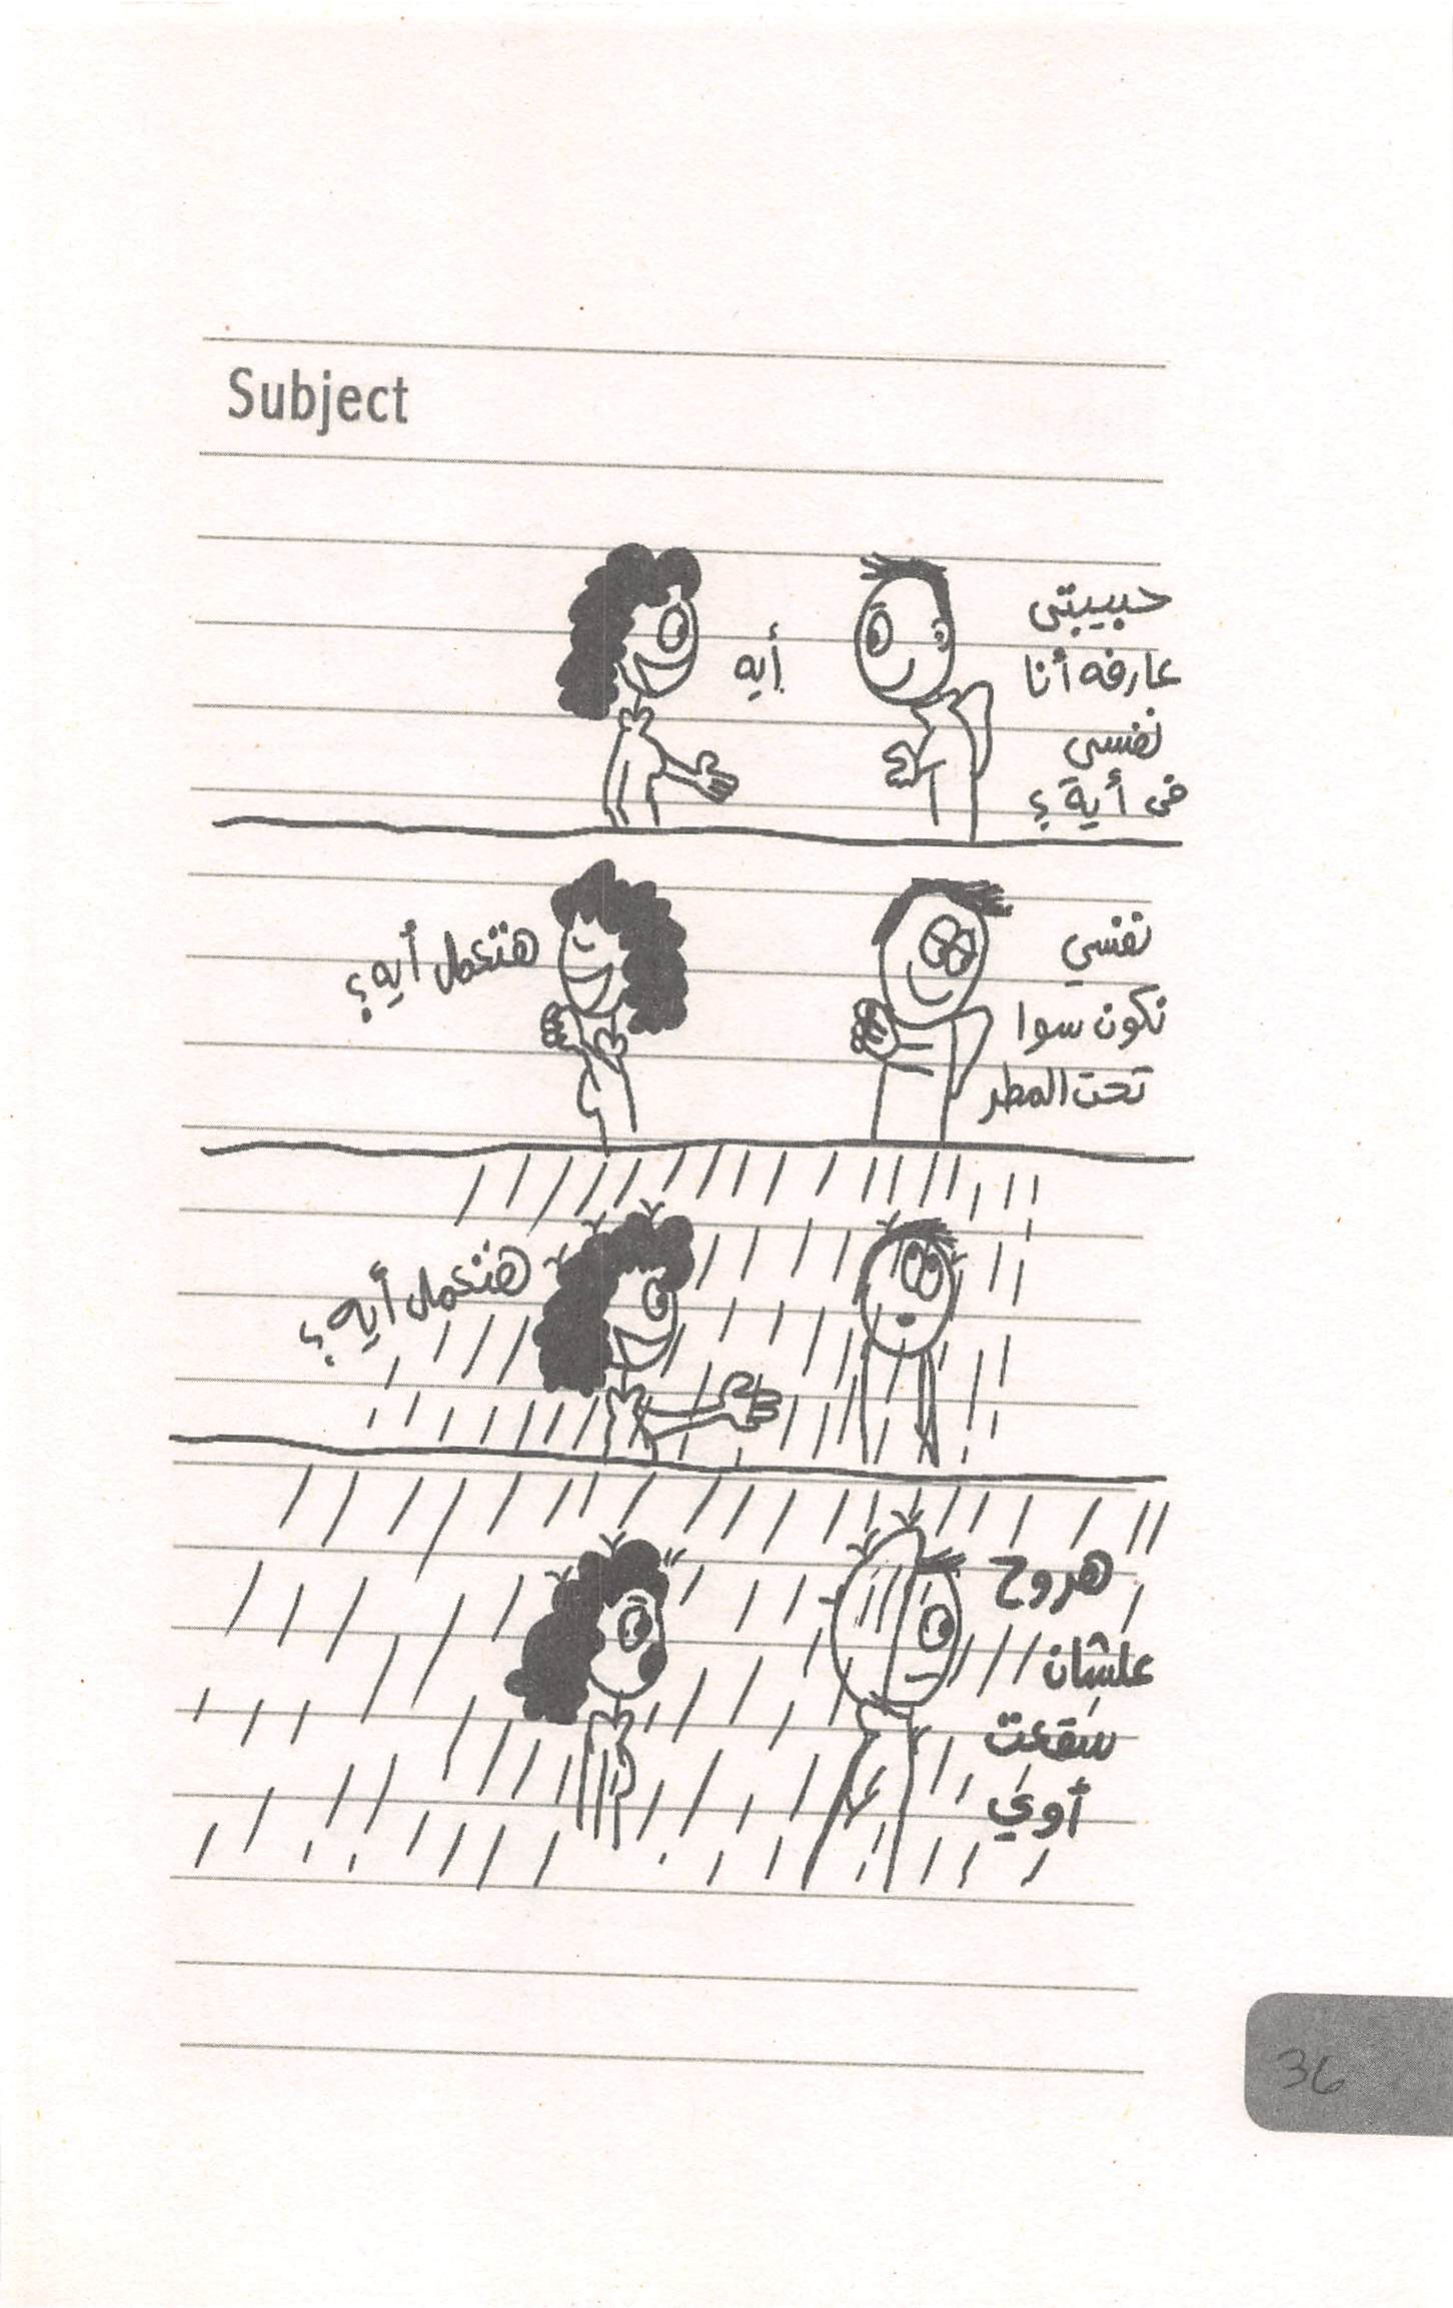 Subject
حبيبتى
عارفه أنا
نفسى
فى أية؟
أيه
نفسي
نكون سوا
تحت المطر
هتعمل أيه؟
هتعمل أيه؟
هروح
علشان
سقعت
أوي
36